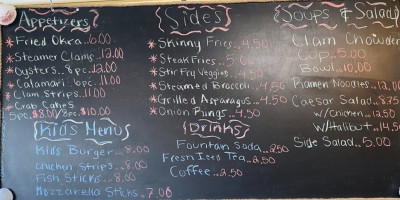 Appetizers
*Fried Okra..6.00
*Steamer Clams..12.00
*Oysters..8pc..12.00
*Calamari 6pc..11.00
*Clam Strips..11.00
*Crab Cakes
5pc.$8.00/8pc.$10.00
Kids Menu
Kids Burger...8.00
Chicken Strips...8.00
Fish Sticks..8.00
Mozzarella Sticks.7.00
{Sides}
*Skinny Fries..4.50
*Steak Fries..5.0
*Stir Fry Veggies..4.50
*Steamed Broccoli..4.50
*Grilled Asparagus..4.50
*Onion Rings..4.50
{Drinks}
Fountain Soda..2.50
Fresh Iced Tea..2.50
Coffee..2.50
{Soups & Salad
Clam Chowder
Cup..5.00
Bowl..10.00
Ramen Noodles..12.00
Caesar Salad..8.75
w/Chicken..12.50
w/Halibut..14.5
Side Salad..5.00